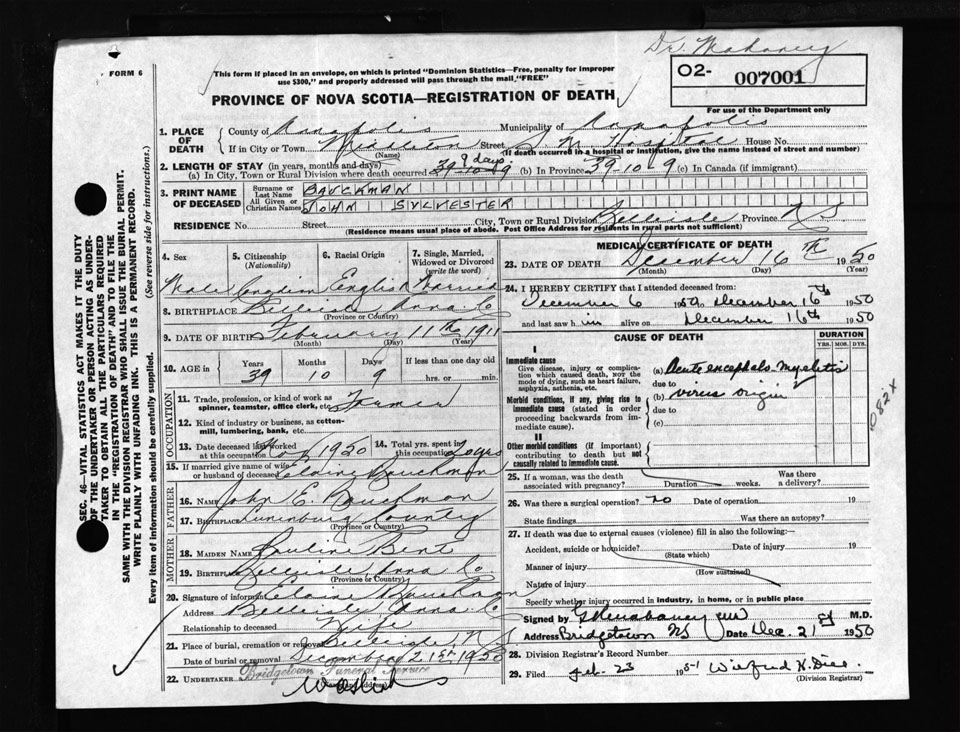 Dr. Mahaney
FORM 6
This form if placed in an envelope, on which is printed "Dominion Statistics—Free, penalty for improper
use $300," and properly addressed will pass through the mail, "FREE"
O2- 007001
For use of the Department only
PROVINCE OF NOVA SCOTIA—REGISTRATION OF DEATH
1. PLACE OF DEATH
County of Annapolis Municipality of Annapolis
If in City or Town Middleton Street S M Hospital House No.
(Name) (If death occurred in a hospital or institution, give the name instead of street and number)
2. LENGTH OF STAY (in years, months and days)
9 days
(a) In City, Town or Rural Division where death occurred 39-10-9 (b) In Province 39-10 9 (c) In Canada (if immigrant)
3. PRINT NAME OF DECEASED
Surname or Last Name BAUCKMAN
All Given or Christian Names JOHN SYLVESTER
RESIDENCE No. Street City, Town or Rural Division Belleisle Province N S
(Residence means usual place of abode. Post Office Address for residents in rural parts not sufficient)
4. Sex
Male
5. Citizenship
(Nationality)
Canadian
6. Racial Origin
English
7. Single, Married,
Widowed or Divorced
(write the word)
Married
8. BIRTHPLACE Belleisle Anna Co
(Province or Country)
9. DATE OF BIRTH February 11th 1911
(Month) (Day) (Year)
10. AGE in
Years Months Days If less than one day old
39 10 9 hrs. or min.
OCCUPATION
11. Trade, profession, or kind of work as
spinner, teamster, office clerk, etc. Farmer
12. Kind of industry or business, as cotton-
mill, lumbering, bank, etc.
13. Date deceased last worked
at this occupation Nov 1950
14. Total yrs. spent in
this occupation 20 yrs
15. If married give name of wife
or husband of deceased Elaine Bauckman
FATHER
16. NAME John E. Bauckman
17. BIRTHPLACE Lunenburg County
(Province or Country)
MOTHER
18. MAIDEN NAME Pauline Bent
19. BIRTHPLACE Belleisle Anna Co.
(Province or Country)
20. Signature of informant Elaine Bauckman
Address Belleisle, Anna. Co
Relationship to deceased Wife
21. Place of burial, cremation or removal Belleisle, N S
Date of burial or removal December 21st 1950
22. UNDERTAKER Bridgetown Funeral Service
MEDICAL CERTIFICATE OF DEATH
23. DATE OF DEATH December 16th 1950
(Month) (Day) (Year)
24. I HEREBY CERTIFY that I attended deceased from:
December 6 1950 to December 16th 1950
and last saw him alive on December 16th 1950
CAUSE OF DEATH
DURATION
YRS. MOS. DYS.
I
Immediate cause
Give disease, injury or complica-
tion which caused death, not the
mode of dying, such as heart failure,
asphyxia, asthenia, etc.
(a) Acute encephalo-myelitis
due to
Morbid conditions, if any, giving rise to
immediate cause (stated in order
proceeding backwards from im-
mediate cause).
(b) virus origin
due to
(c)
II
Other morbid conditions (if important)
contributing to death but not
causally related to immediate cause.
082X
25. If a woman, was the death
associated with pregnancy? Duration weeks. Was there a delivery?
26. Was there a surgical operation? no Date of operation 19
State findings Was there an autopsy?
27. If death was due to external causes (violence) fill in also the following:—
Accident, suicide or homicide? Date of injury 19
(State which)
Manner of injury
(How sustained)
Nature of injury
Specify whether injury occurred in industry, in home, or in public place
Signed by M.D.
Address Bridgetown NS Date Dec. 21st 1950
28. Division Registrar's Record Number
29. Filed Feb. 23 1951
(Division Registrar)
SEC. 46—VITAL STATISTICS ACT MAKES IT THE DUTY
OF THE UNDERTAKER OR PERSON ACTING AS UNDER-
TAKER TO OBTAIN ALL THE PARTICULARS REQUIRED
IN THE "REGISTRATION OF DEATH" AND TO FILE THE
SAME WITH THE DIVISION REGISTRAR WHO SHALL ISSUE THE BURIAL PERMIT.
WRITE PLAINLY WITH UNFADING INK. THIS IS A PERMANENT RECORD.
Every item of information should be carefully supplied. (See reverse side for instructions.)